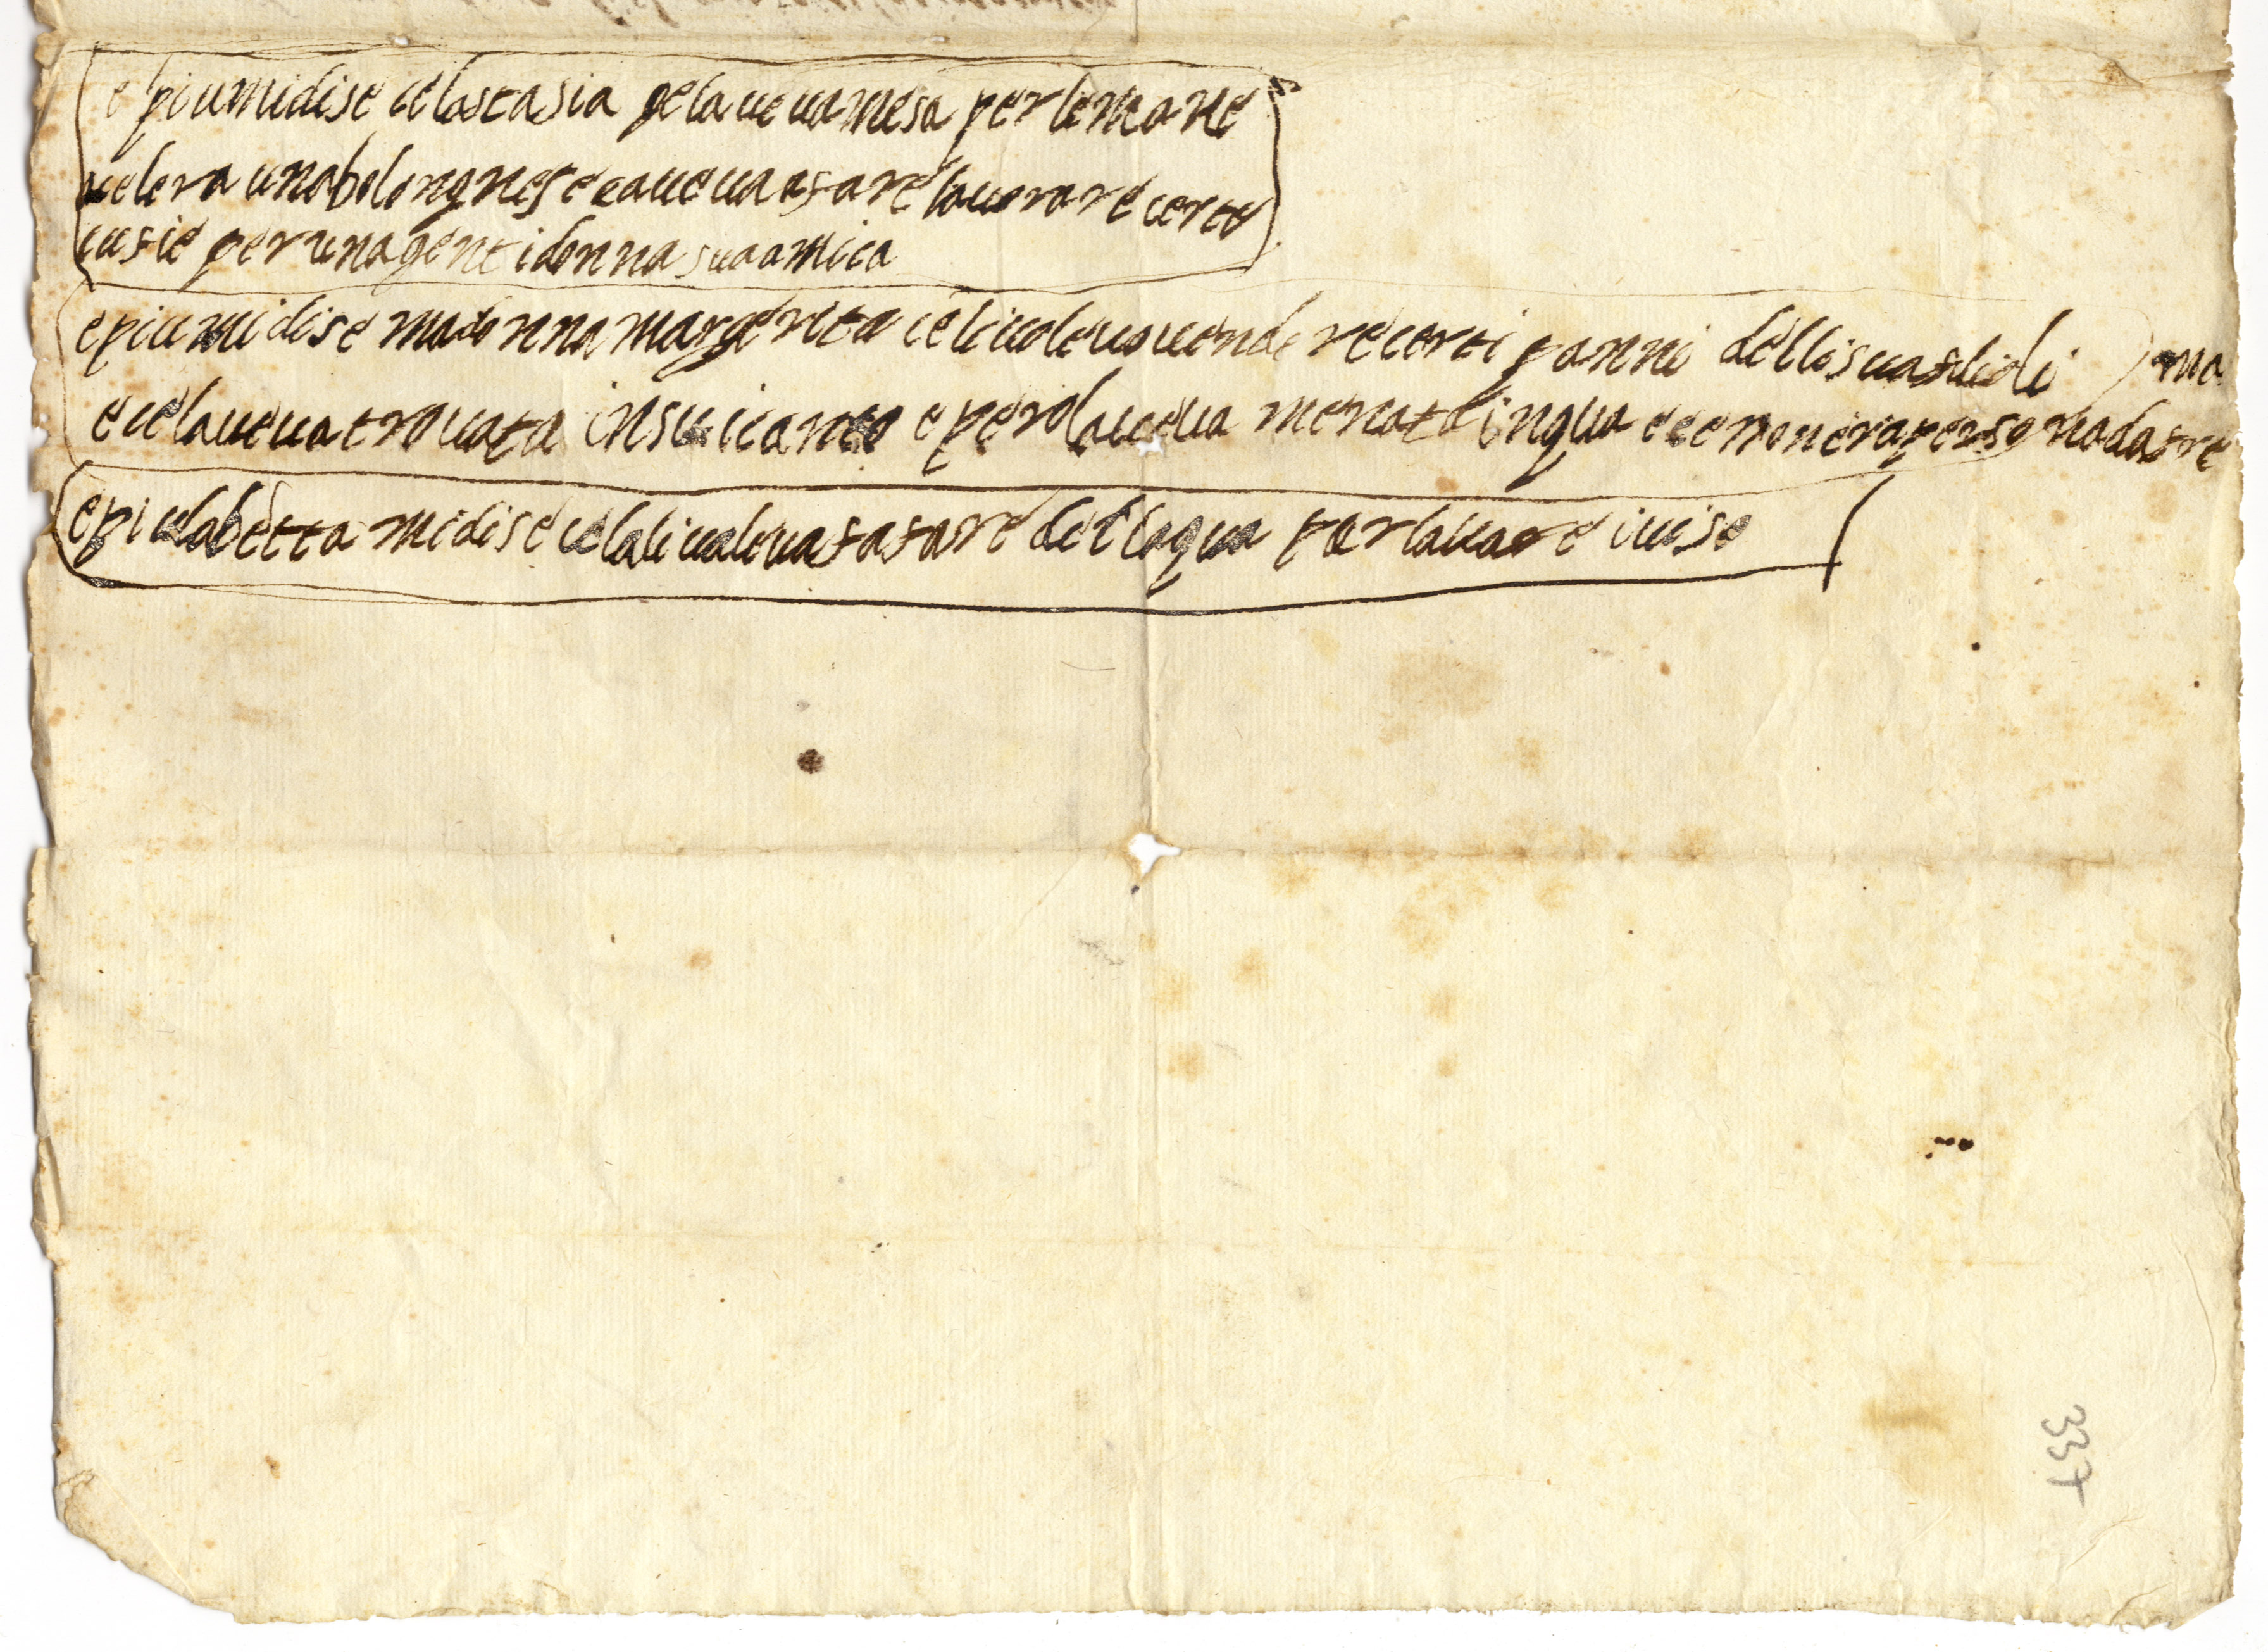 e piu mi dise ce lastasia ge la ueua mesa per le mane
ce lera una bolongnese e aueua a fare lauorare certe
cusie per una gentidonna sua amica
e piu mi dise madonna margerita ce li uoleua uendere certi panni delli sua figlioli ma
e ce laueua trouata in su il canto e pero laueua menata in qua e ce non era persona da fare
e piu labetta mi dise ce la li uoleua fa fare dellaqua per lauare i uiso
337